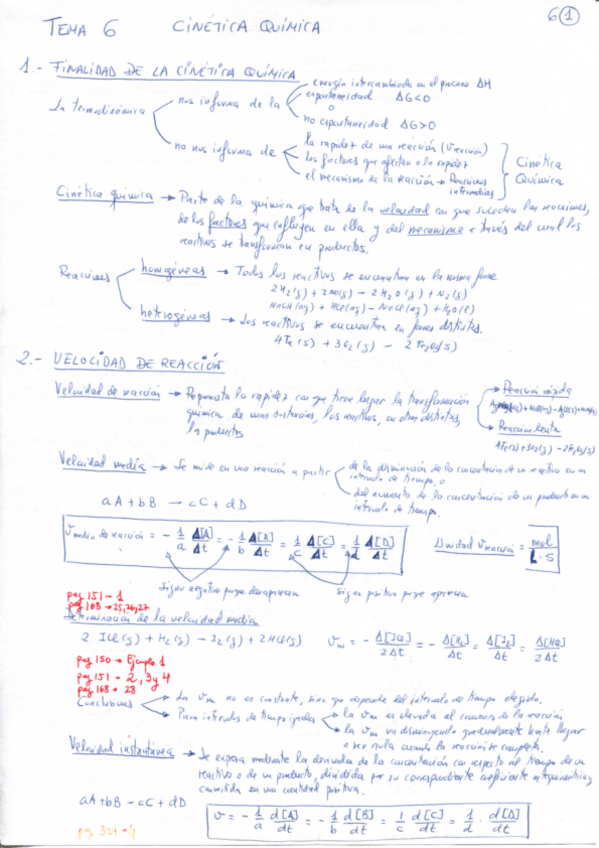 6 1
TEMA 6 CINÉTICA QUÍMICA
1.- FINALIDAD DE LA CINÉTICA QUÍMICA
La termodinámica
nos informa de la
energía intercambiada en el proceso ΔH
espontaneidad ΔG<0
o
no espontaneidad ΔG>0
no nos informa de
la rapidez de una reacción (v reacción)
los factores que afectan a la rapidez
el mecanismo de la reacción → Reacciones intermedias
Cinética Química
Cinética química → Parte de la química que trata de la velocidad con que suceden las reacciones,
de los factores que influyen en ella y del mecanismo a través del cual los
reactivos se transforman en productos.
Reacciones
homogéneas → Todos los reactivos se encuentran en la misma fase
2H₂(g) + 2NO(g) → 2H₂O(g) + N₂(g)
NaOH(aq) + HCl(aq) → NaCl(aq) + H₂O(l)
heterogéneas → Los reactivos se encuentran en fases distintas.
4Fe(s) + 3O₂(g) → 2Fe₂O₃(s)
2.- VELOCIDAD DE REACCIÓN
Velocidad de reacción → Representa la rapidez con que tiene lugar la transformación
química de unas sustancias, los reactivos, en otras distintas,
los productos
→ Reacción rápida
→ Reacción lenta
4Fe(s)+3O₂(g) → 2Fe₂O₃(s)
Velocidad media → Se mide en una reacción a partir
de la disminución de la concentración de un reactivo en un
intervalo de tiempo, o
del aumento de la concentración de un producto en un
intervalo de tiempo.
aA + bB → cC + dD
v media de reacción = - 1/a Δ[A]/Δt = - 1/b Δ[B]/Δt = 1/c Δ[C]/Δt = 1/d Δ[D]/Δt
Unidad v reacción = mol/L·s
Signo negativo porque desaparecen
Signo positivo porque aparecen
pag 151 - 1
pag 168 → 25, 26, 27
Determinación de la velocidad media
2 ICl(g) + H₂(g) → I₂(g) + 2HCl(g)
vm = - Δ[ICl]/2Δt = - Δ[H₂]/Δt = Δ[I₂]/Δt = Δ[HCl]/2Δt
pag 150 → Ejemplo 1
pag 151 - 2, 3 y 4
pag 168 - 28
Conclusiones
→ La vm no es constante, sino que depende del intervalo de tiempo elegido.
→ Para intervalos de tiempo iguales
→ la vm es elevada al comienzo de la reacción
→ la vm va disminuyendo gradualmente hasta llegar
a ser nula cuando la reacción se completa.
Velocidad instantánea → Se expresa mediante la derivada de la concentración con respecto al tiempo de un
reactivo o de un producto, dividida por su correspondiente coeficiente estequiométrico y
convertida en una cantidad positiva.
aA + bB → cC + dD
v = - 1/a d[A]/dt = - 1/b d[B]/dt = 1/c d[C]/dt = 1/d · d[D]/dt